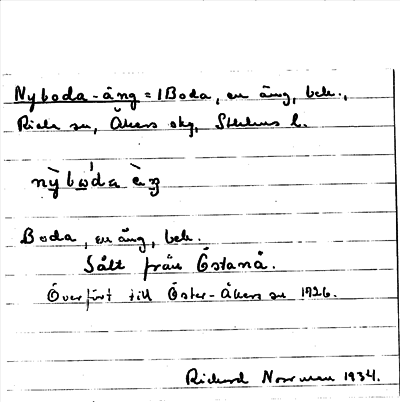 Nyboda-äng = 1 Boda, en äng, beb.,
Riala sn, Åkers skg, Sthlms l.
nỳbὼda ὲŋ
Boda, en äng, beb.
Sålt från Östanå.
Överfört till Öster-Åkers sn 1926.
Richard Norrman 1934.